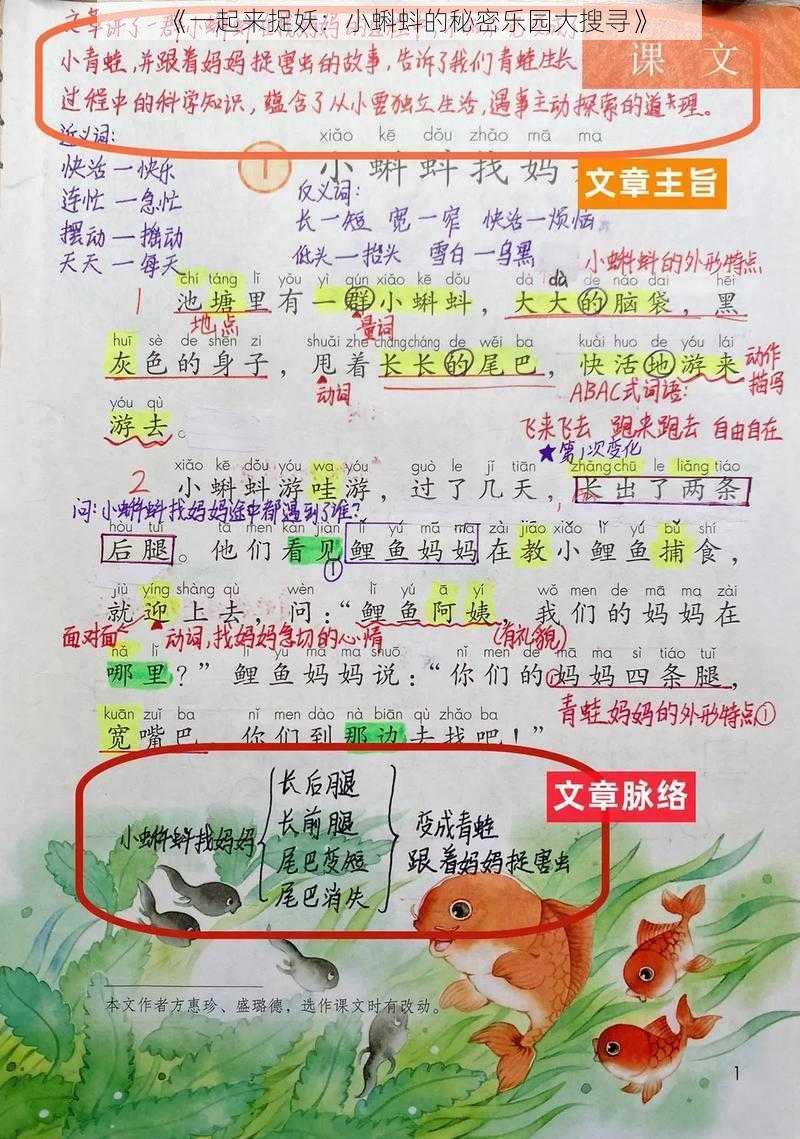 《一起来捉妖：小蝌蚪的秘密乐园大搜寻》
小青蛙,并跟着妈妈捉害虫的故事,告诉了我们青蛙生长
过程中的科学知识，蕴含了从小要独立生活,遇事主动探索的道理。
课 文
xiǎo kē dǒu zhǎo mā ma
1 小蝌蚪找妈
文章主旨
近义词:
快活—快乐
连忙—急忙
摆动—摇动
天天—每天
反义词:
长—短 宽—窄 快活—烦恼
低头—抬头 雪白—乌黑
小蝌蚪的外形特点
chí táng lǐ yǒu yì qún xiǎo kē dǒu dà dà de nǎo dai hēi
1 池塘里有一群小蝌蚪，大大的脑袋，黑
地点
量词
huī sè de shēn zi shuǎi zhe cháng cháng de wěi ba kuài huo de yóu lái
灰色的身子，甩着长长的尾巴，快活地游来
动词
动作
描写
ABAC式词语:
yóu qù
游去。
飞来飞去 跑来跑去 自由自在
★第1次变化
xiǎo kē dǒu yóu wa yóu guò le jǐ tiān zhǎng chū le liǎng tiáo
2 小蝌蚪游哇游，过了几天，长出了两条
问:小蝌蚪找妈妈途中都遇到了谁?
hòu tuǐ tā men kàn jiàn lǐ yú mā ma zài jiāo xiǎo lǐ yú bǔ shí
后腿。他们看见鲤鱼妈妈在教小鲤鱼捕食，
①
jiù yíng shàng qù wèn lǐ yú ā yí wǒ men de mā ma zài
就迎上去，问：“鲤鱼阿姨，我们的妈妈在
面对面
动词,找妈妈急切的心情
(有礼貌)
nǎ lǐ lǐ yú mā ma shuō nǐ men de mā ma sì tiáo tuǐ
哪里？”鲤鱼妈妈说：“你们的妈妈四条腿，
青蛙妈妈的外形特点①
kuān zuǐ ba nǐ men dào nà biān qù zhǎo ba
宽嘴巴。你们到那边去找吧！”
文章脉络
小蝌蚪找妈妈
长后腿
长前腿
尾巴变短
尾巴消失
变成青蛙
跟着妈妈捉害虫
本文作者方惠珍、盛璐德，选作课文时有改动。
1